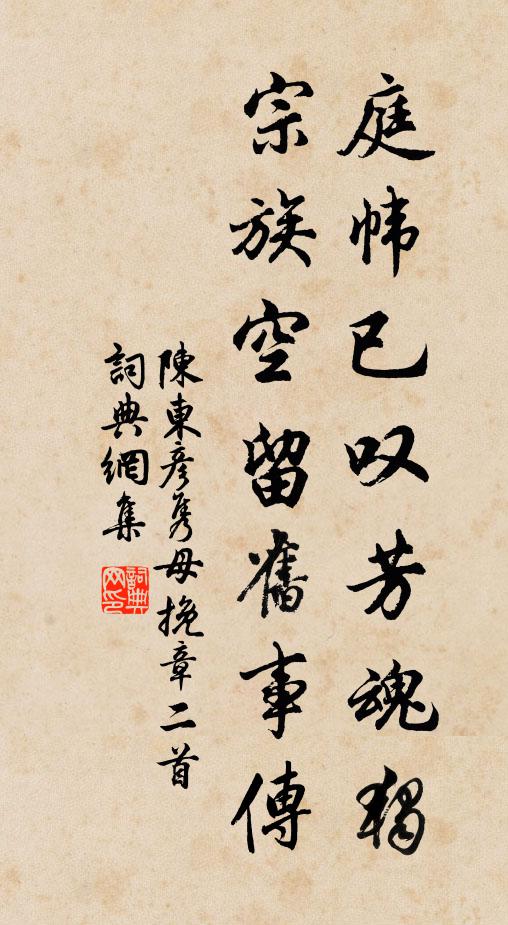 庭帏已叹芳魂独
宗族空留舊事傳
陳東彥隽母挽章二首
詞典網集
詞典网印